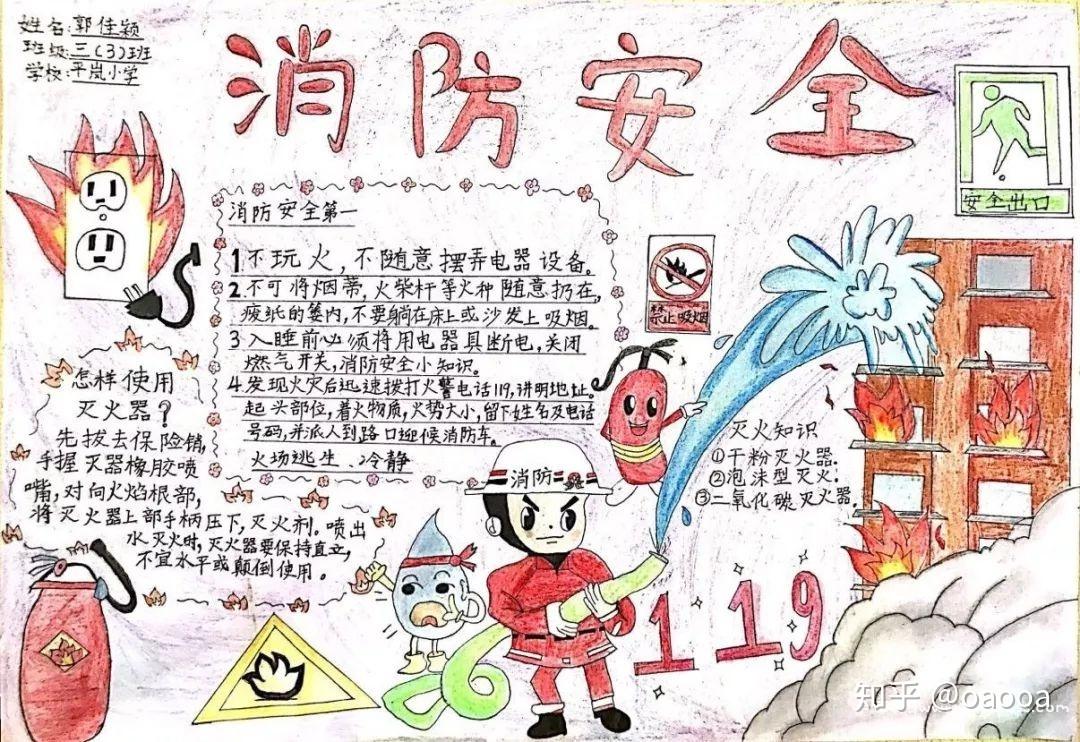 姓名:郭佳颖
班级:三(3)班
学校:平岚小学
消防安全
安全出口
消防安全第一
1不玩火，不随意摆弄电器设备。
2.不可将烟蒂，火柴杆等火种随意扔在，
废纸的篓内，不要躺在床上或沙发上吸烟。
3入睡前必须将用电器具断电，关闭
燃气开关，消防安全小知识。
4发现火灾后迅速拨打火警电话119，讲明地址。
起头部位，着火物质，火势大小，留下姓名及电话
号码，并派人到路口迎候消防车。
火场逃生、冷静
禁止吸烟
怎样使用
灭火器？
先拔去保险销，
手握灭器橡胶喷
嘴，对向火焰根部，
将灭火器上部手柄压下，灭火剂。喷出
水灭火时，灭火器要保持直立，
不宜水平或颠倒使用。
灭火知识
①干粉灭火器.
②泡沫型灭火.
③二氧化碳灭火器.
消防
119
知乎 @oaooa